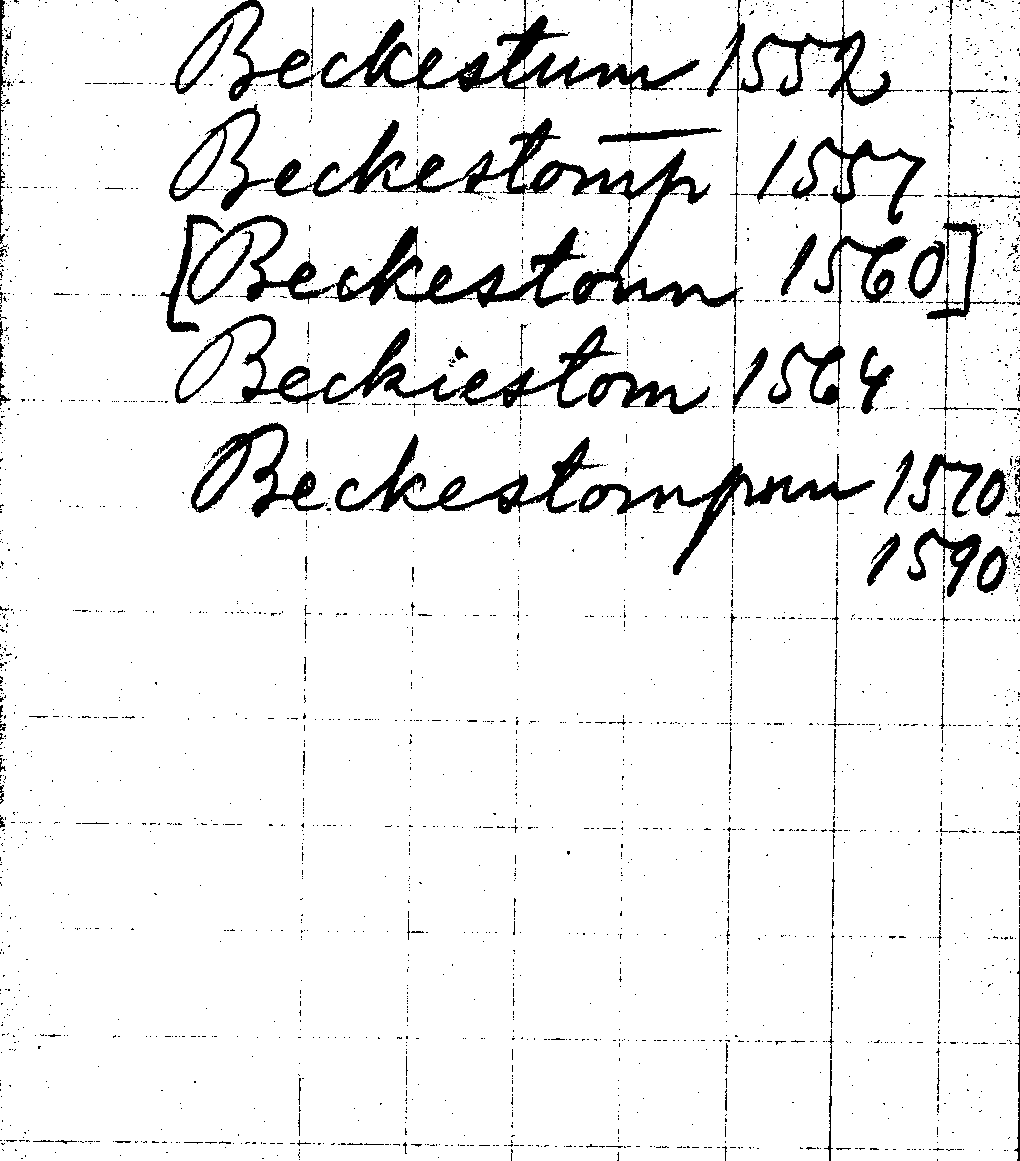 Beckestum 1552
Beckestomp̅ 1557
[Beckestonn 1560]
Beckiestom 1564
Beckestompnn 1570
1590